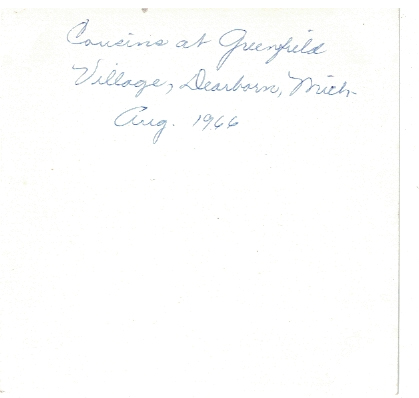 Cousins at Greenfield
Village, Dearborn, Mich.
Aug. 1966